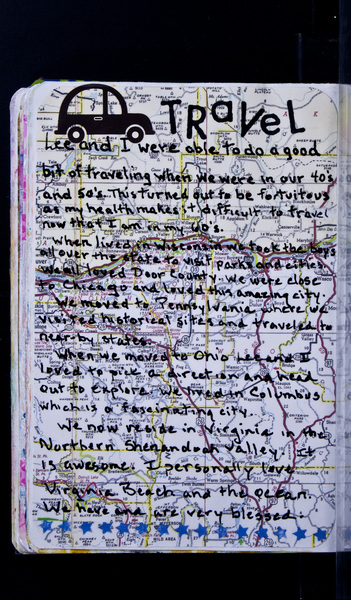 TRAVEL
Lee and I were able to do a good
bit of traveling when we were in our 40's
and 50's. This turned out to be fortuitous
as my health makes it difficult to travel
now that I am in my 60's.
When lived in Wisconsin we took the boys
all over the state to visit parks and cities.
We all loved Door County. We were close
to Chicago and loved this amazing city.
We moved to Pennsylvania where we
visited historical sites and traveled to
near-by states.
When we moved to Ohio Lee and I
loved to pick a direction and head
out to explore. We lived in Columbus
which is a fascinating city.
We now reside in Virginia in the
Northern Shenandoah Valley. It
is awesome. I personally love
Virginia Beach and the ocean.
We have and are very blessed.